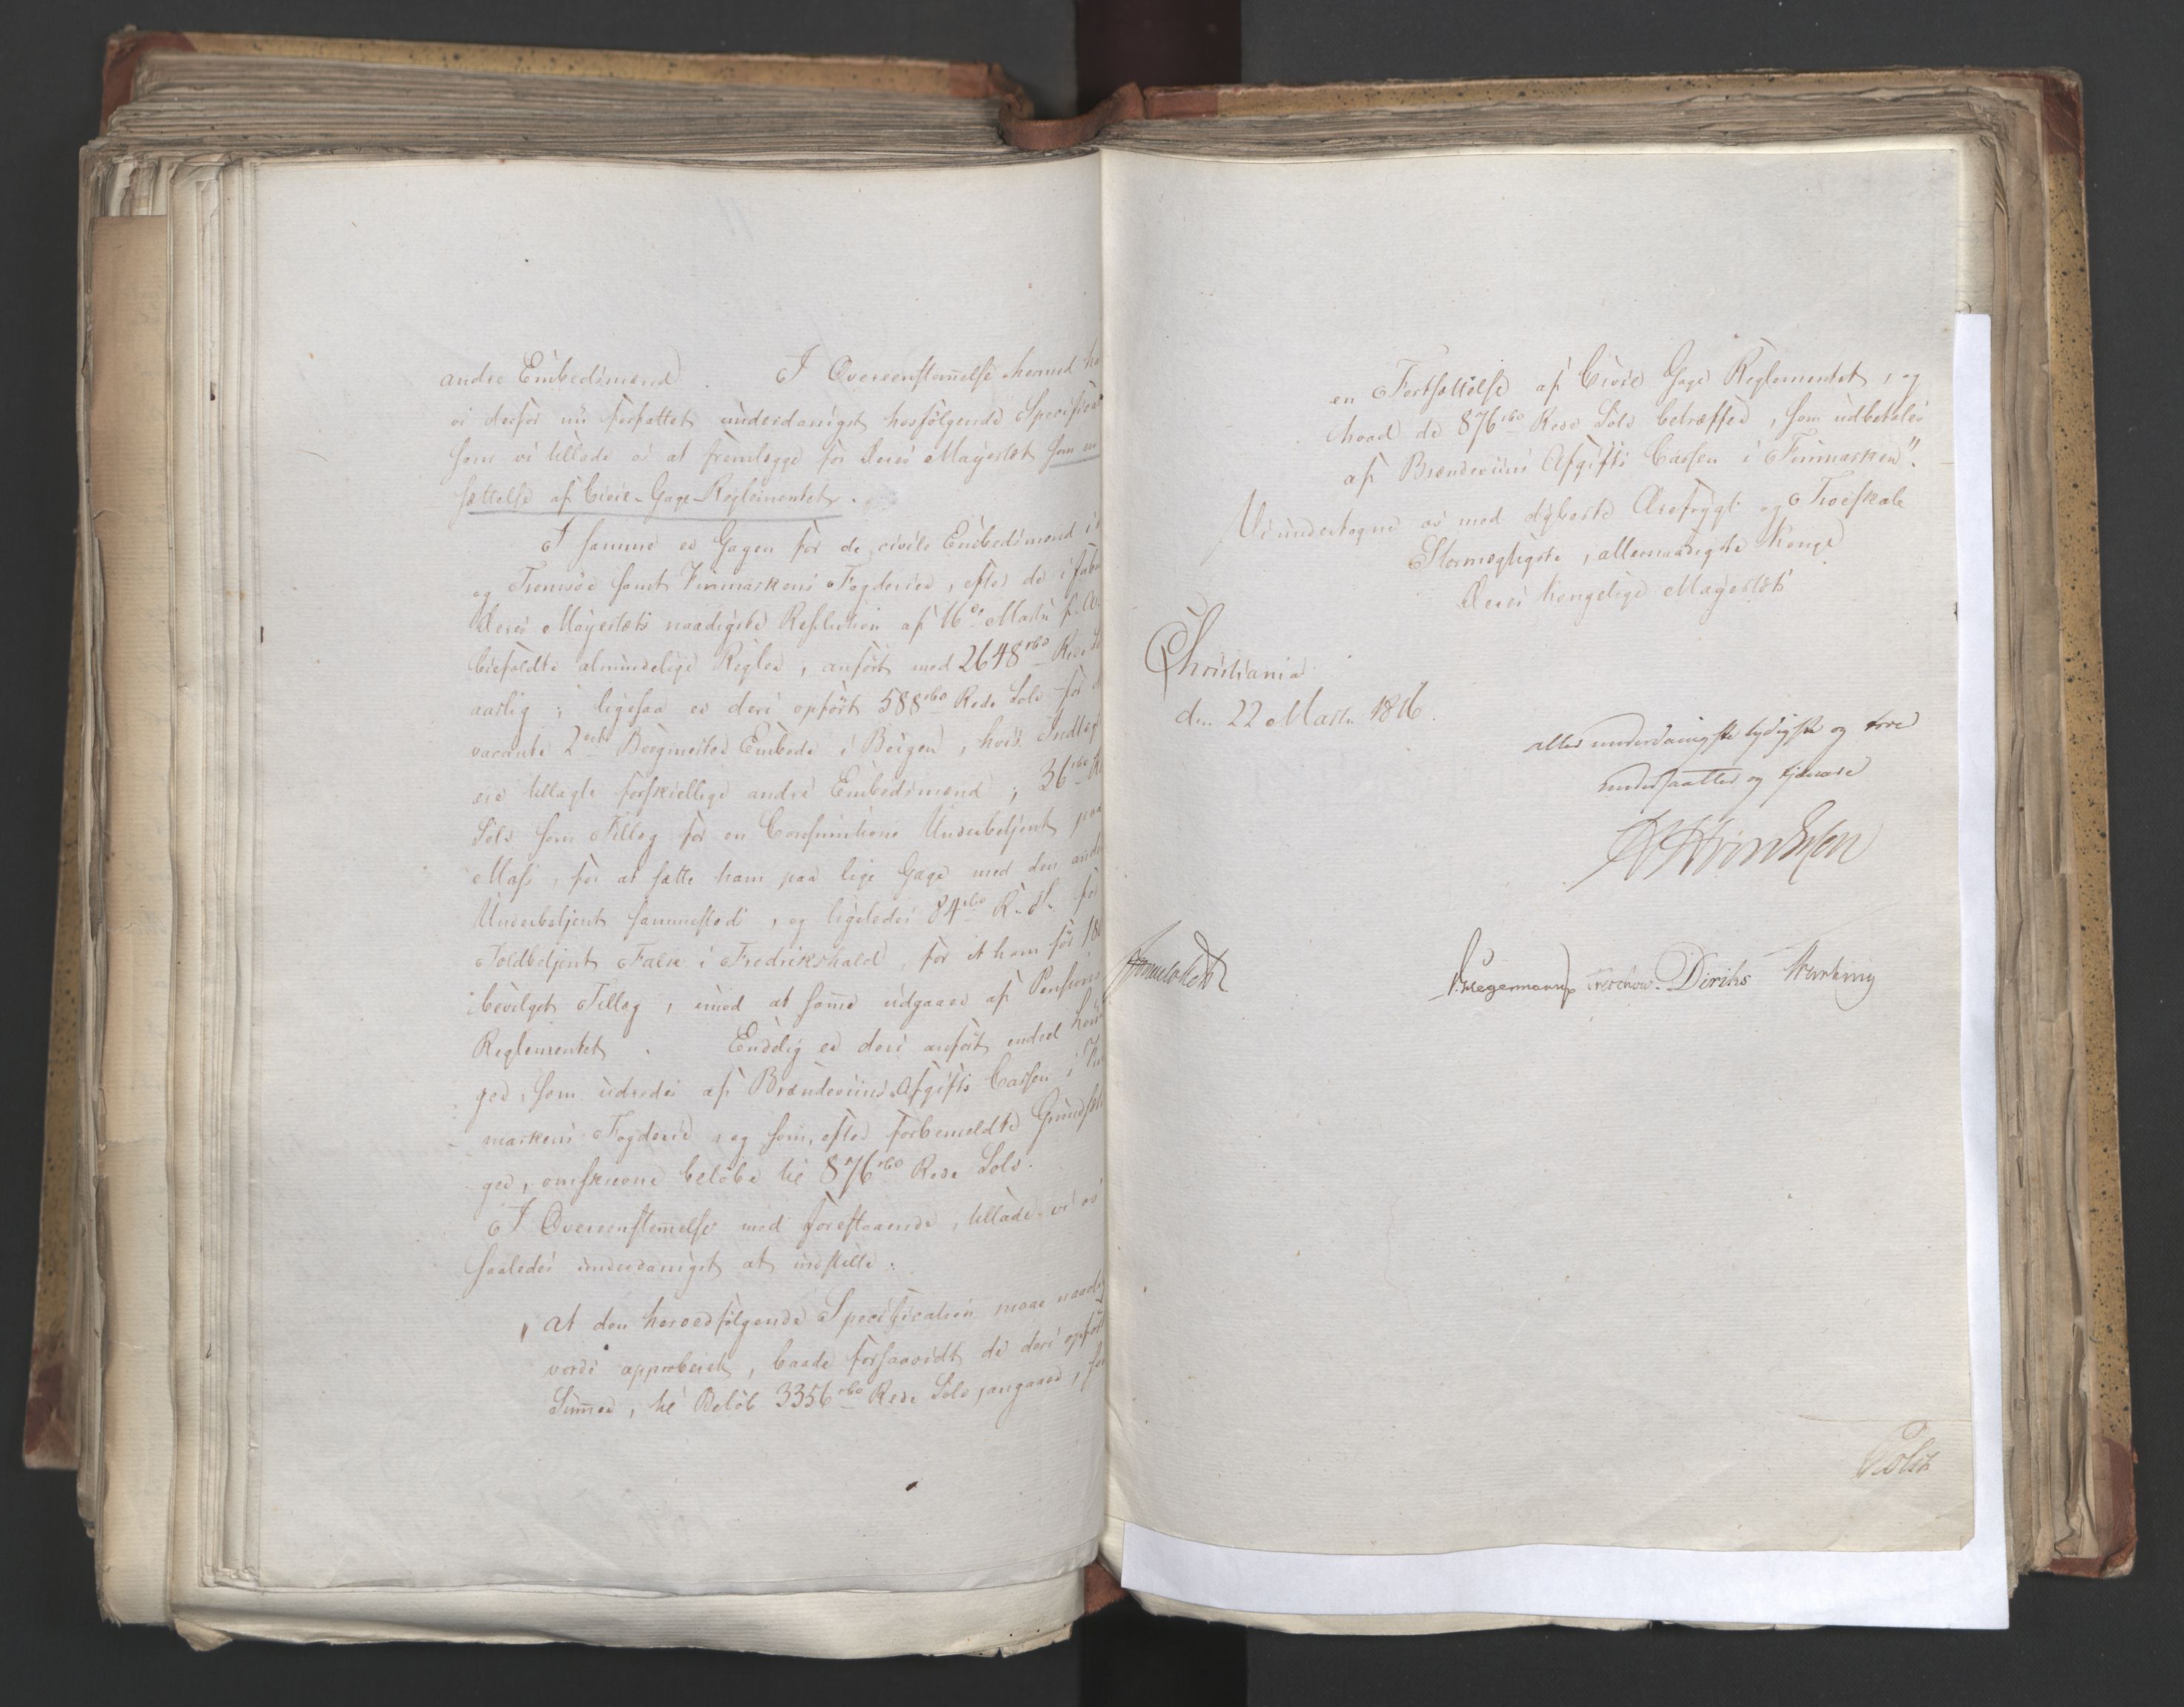 andre Embedsmænd. I Overeenstemmelse hermed ha
vi derfor nu forfattet underdanigst hosfølgende Specifica
som vi tillade os at fremlægge for Deres Mayestæt som en
sættelse af Civil-Gage-Reglementet.
I samme er Gagen for de civile Embedsmænd i
og Tromsöe samt Finmarkens Fogderier, efter de i
Deres Mayestæts naadigste Resolution af 16de Martii f. A.
biefaldte almindelige Regler, anført med 2648 rbd Rede
aarlig; ligesaa er deri opført 588 rbd Rede Sölv for
vacante 2det Borgmester Embede i Bergen, hvis Indtæg
ere tillagte forskiellige andre Embedsmænd; 36 rbd R
Sölv som Tillæg for en Consumtions Underbetjent paa
Moss, for at sætte ham paa lige Gage med den anden
Underbetjent sammesteds, og ligeledes 84 rbd R. S. for
Toldbetjent Falk i Fredrikshald, for et ham för 18
bevilget Tillæg, imod at samme udgaaer af Pensions
Reglementet. Endelig er deri anført endeel
ger, som udredes af Brændeviins Afgifts Cassen i
markens Fogderie, og som, efter forbemeldte Grundsæt
ger, omskrevne beløbe til 876 rbd Rede Sölv.
I Overeenstemmelse med forestaaende, tillade vi os
saaledes underdanigst at indstille:
" at den hervedfølgende Specification maae naad
vorde approberet, baade forsaavidt de deri opfört
Summer, til Beløb 3356 rbd Rede Sölv, angaaer,
en Fortsættelse af Civil Gage Reglementet, og
hvad de 876 rbd Rede Sölv betræffer, som udbetales
af Brændeviins Afgifts Cassen i Finmarken".
Vi undertegne os med dybeste Ærefrygt og Troeskab
Stormægtigste, allernaadigste Konge
Deres Kongelige Mayestæts
Christiania
den 22 Martii 1816.
allerunderdanigste lydigste og troe
undersaatter og tjenere
Hegermann Treschow. Diriks
Holst